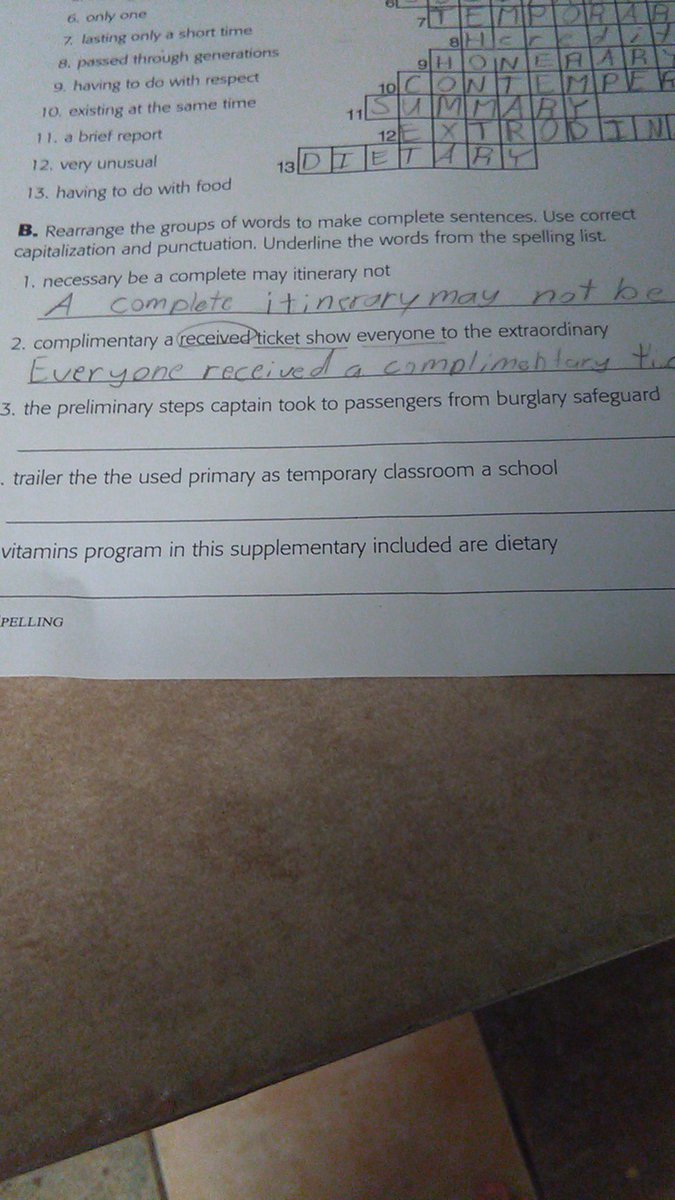 6. only one
7. lasting only a short time
8. passed through generations
9. having to do with respect
10. existing at the same time
11. a brief report
12. very unusual
13. having to do with food
7 TEMPORAR
8 Heredit
9 HONERARY
10 CONTEMPER
11 SUMMARY
12 EXTRODIN
13 DIETARY
B. Rearrange the groups of words to make complete sentences. Use correct
capitalization and punctuation. Underline the words from the spelling list.
1. necessary be a complete may itinerary not
A complete itinerary may not be
2. complimentary a received ticket show everyone to the extraordinary
Everyone received a complimentary tic
3. the preliminary steps captain took to passengers from burglary safeguard
. trailer the the used primary as temporary classroom a school
vitamins program in this supplementary included are dietary
PELLING